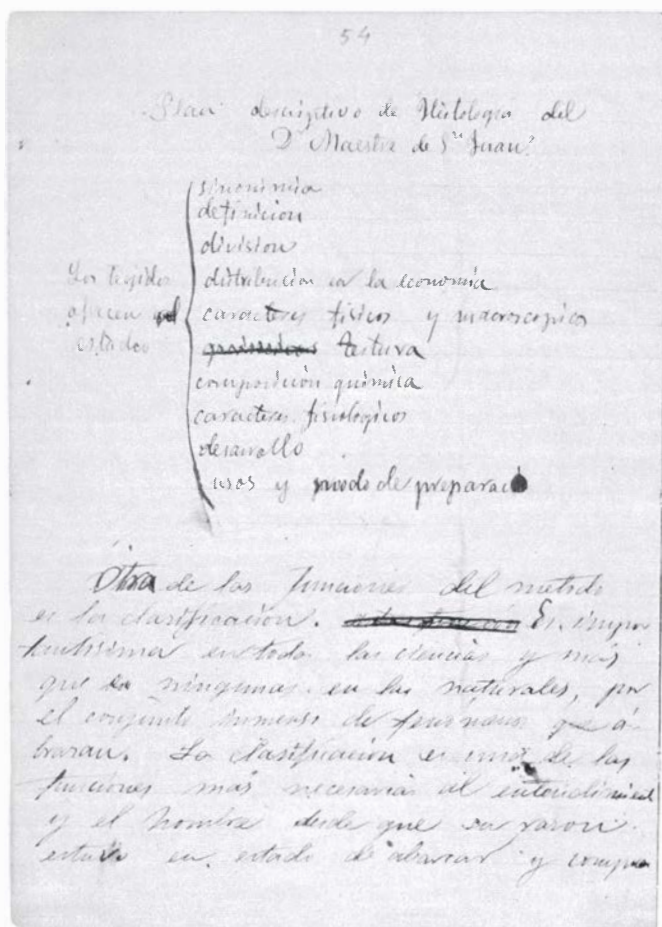 54
Plan descriptivo de Histologia del
Dr Maestre de Sn Juan.
sinonimia
definicion
division
Los tegidos distribucion en la economia
ofrecen al caracteres fisicos y macroscopicos
estadeo testura
composición quimica
caracteres fisiologicos
desarrollo
usos y modo de preparació
Otra de las funciones del metodo
es la clasificacion. Es impor
tantisima en todas las ciencias y más
que en ningunas en las naturales, por
el conjunto inmenso de que a
brazan. La clasificacion es una de las
funciones mas necesarias al entendimient
y el hombre desde que su razon
estuvo en estado de abarcar y compren